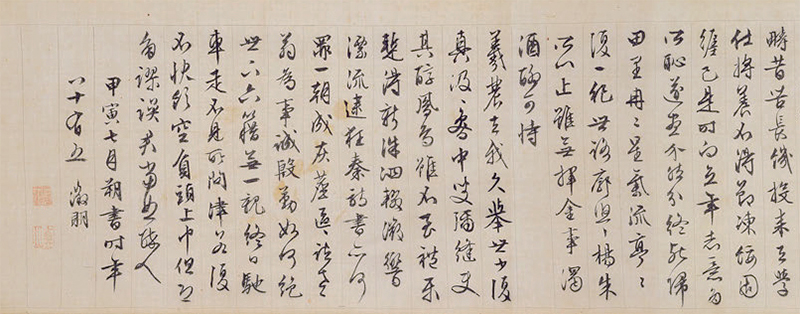 疇昔苦長饑投耒去學
仕將養不得節凍餒固
纏己是時向立年志意多
所恥遂盡介然分終死歸
田里冉〻星氣流亭〻
復一紀世路廓悠〻楊朱
所以止雖無揮金事濁
酒聊可恃
羲農去我久舉世少復
真汲〻魯中叟彌縫使
其醇鳳鳥雖不至禮樂
暫得新洙泗輟微響
漂流逮狂秦詩書亦何
罪一朝成灰塵區〻諸老
翁為事誠殷勤如何絕
世下六籍無一親終日馳
車走不見所問津若復
不快飲空負頭上巾但恨
多謬誤君當恕醉人
甲寅七月朔書時年
八十有五 徵明